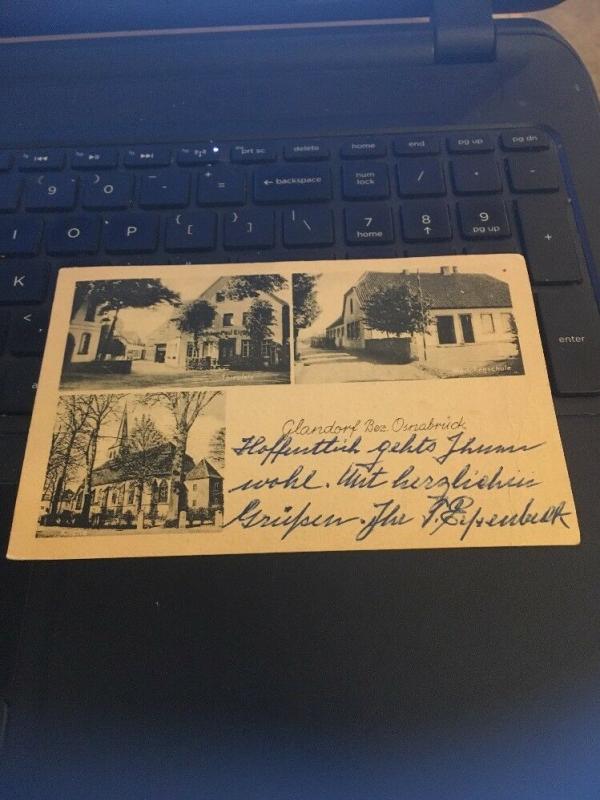 prt sc delete home end pg up pg dn
( 9 ) 0 _ - + = ← backspace num lock / * -
I O P { [ } ] | \ 7 home 8 ↑ 9 pg up +
K
<
enter
Glandorf Bez. Osnabrück
Hoffentlich gehts Ihnen
wohl. Mit herzlichen
Grüßen. Ihr